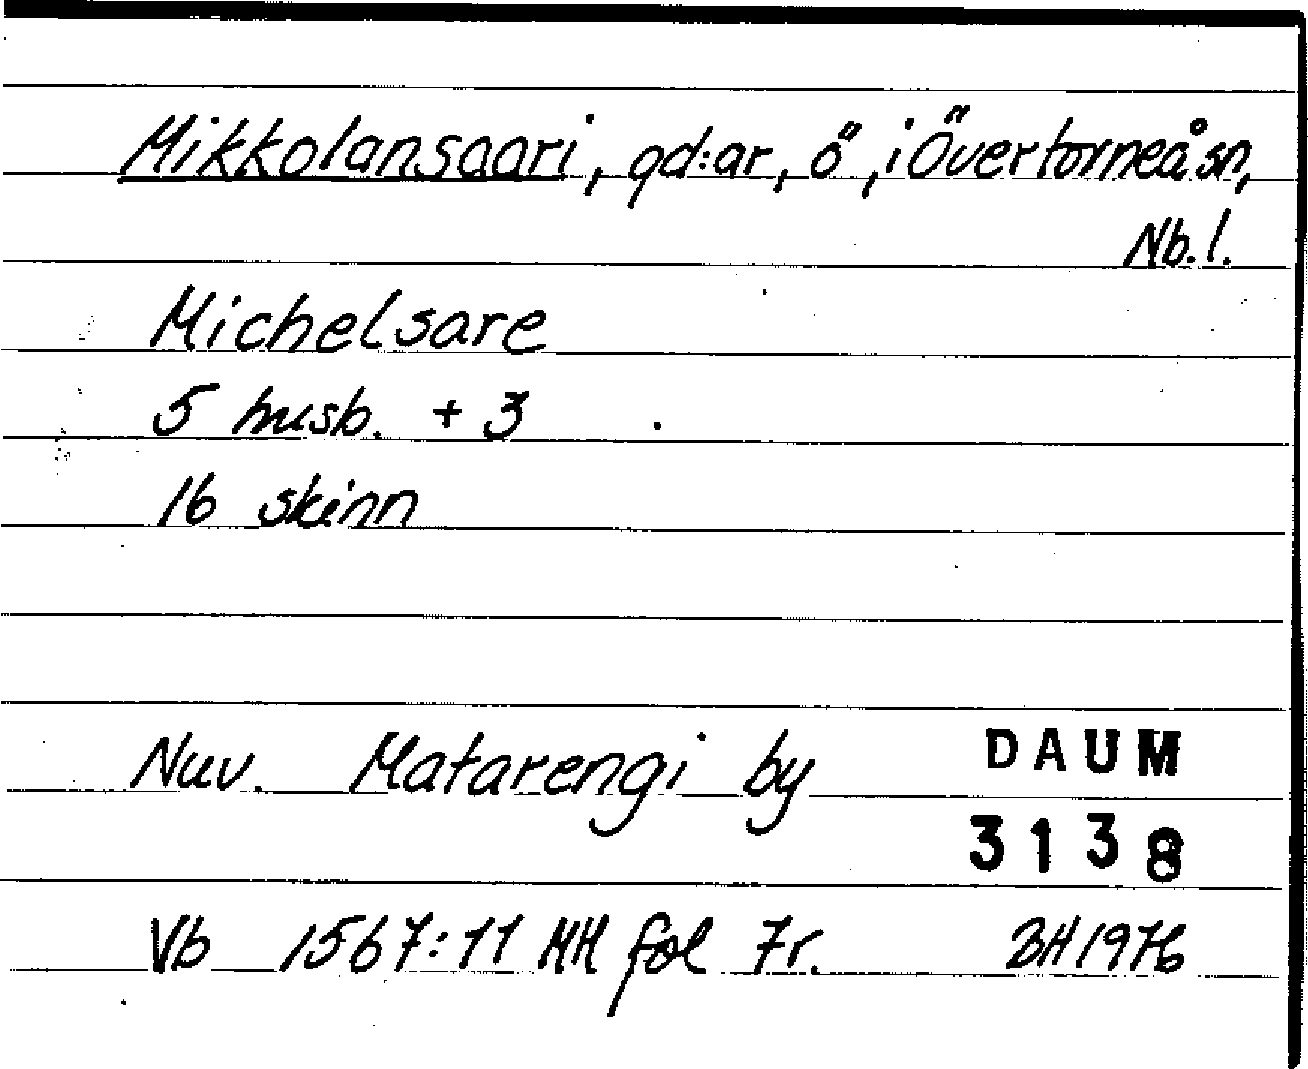 Mikkolansaari, gd:ar, ö, i Övertorneå sn,
Nb. l.
Michelsare
5 husb. + 3
16 skinn
Nuv. Matarengi by
DAUM
3138
Vb 1567:11 MH fol 7r. BH 1976